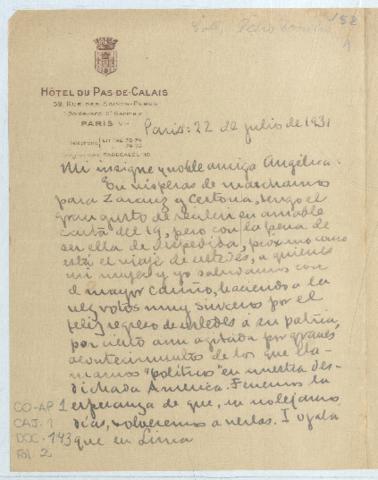 152
HÔTEL DU PAS-DE-CALAIS
59, RUE DES SAINTS-PÈRES
PARIS VIIe
Paris: 22 de julio de 1931
Mi insigne y noble amiga Angélica:
En vísperas de marcharnos
para Zarauz y Cestona, tengo el
gran gusto de recibir su amable
carta del 19, pero con la pena de
ser ella de despedida, próximo como
está el viaje de ustedes, a quienes
mi mujer y yo saludamos con
el mayor cariño, haciendo a la
vez votos muy sinceros por el
feliz regreso de ustedes á su patria,
por cierto aun agitada por graves
acontecimientos de los que lla-
mamos "políticos" en nuestra des-
dichada América. Tenemos la
esperanza de que, en no lejanos
días, volveremos a verlas. I ojala
que en Lima
CO-AP 1
CAJ. 1
DOC. 143
Fol. 2